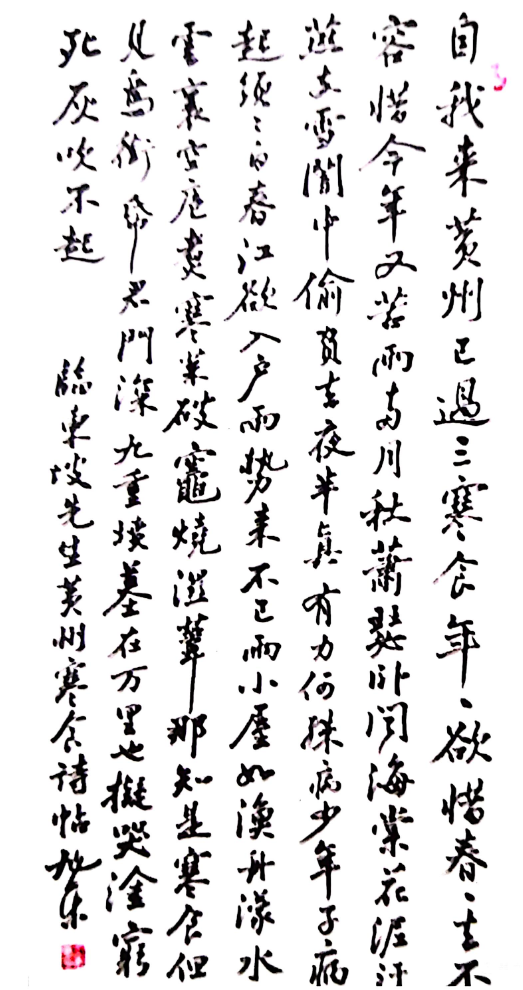 自我来黄州已過三寒食年〻欲惜春〻去不
容惜今年又苦雨两月秋蕭瑟卧聞海棠花泥汙
燕支雪闇中偷負去夜半真有力何殊病少年子病
起須已白春江欲入户雨势来不已雨小屋如漁舟濛水
雲裏空庖煮寒菜破竈燒濕葦那知是寒食但
見烏銜帋君門深九重墳墓在万里也擬哭塗窮
死灰吹不起
臨東坡先生黄州寒食詩帖旭东